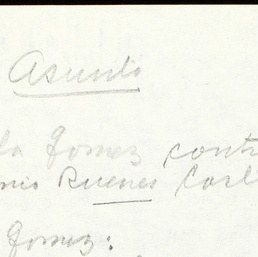 Asunto
la Gomez contr
nio Ruenes Carl
Gomez: